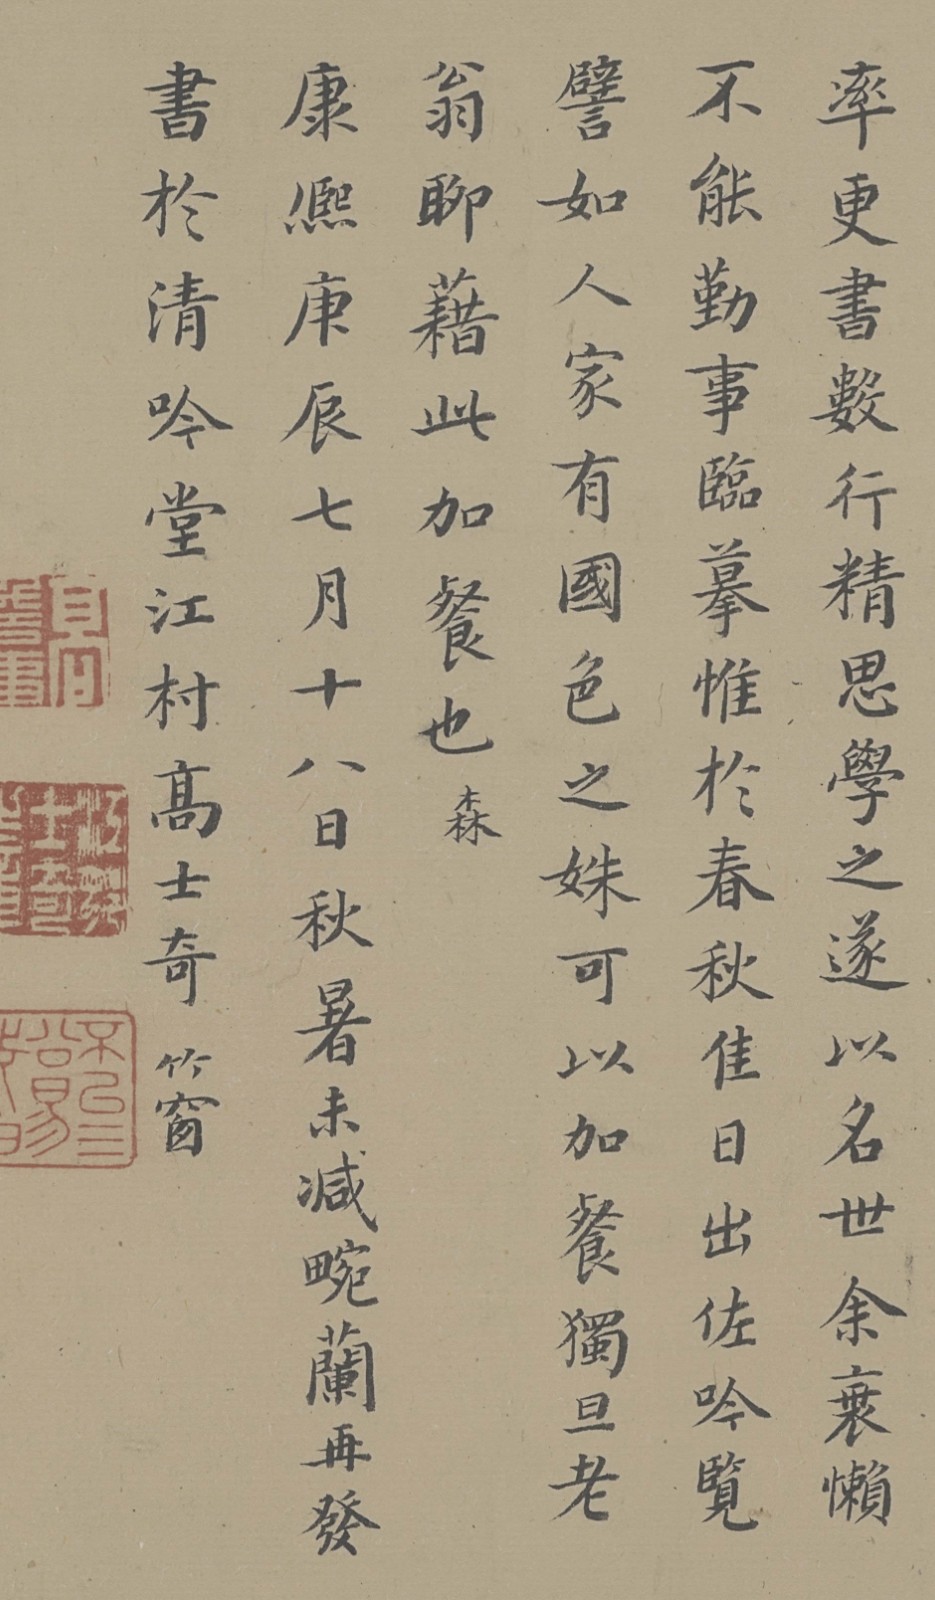 率更書數行精思學之遂以名世余衰懶
不能勤事臨摹惟於春秋佳日出佐吟覽
譬如人家有國色之姝可以加餐獨旦老
翁聊藉此加餐也森
康熙庚辰七月十八日秋暑未減畹蘭再發
書於清吟堂江村高士奇竹窗